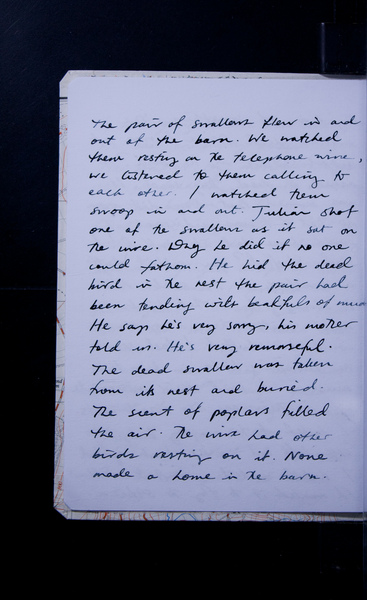 The pair of swallows flew in and
out of the barn. We watched
them resting on the telephone wire,
we listened to them calling to
each other. I watched them
swoop in and out. Julian shot
one of the swallows as it sat on
the wire. Why he did it no one
could fathom. He hid the dead
bird in the nest the pair had
been tending with beakfuls of mud
He says he's very sorry, his mother
told us. He's very remorseful.
The dead swallow was taken
from its nest and buried.
The scent of poplars filled
the air. The wire had other
birds resting on it. None
made a home in the barn.